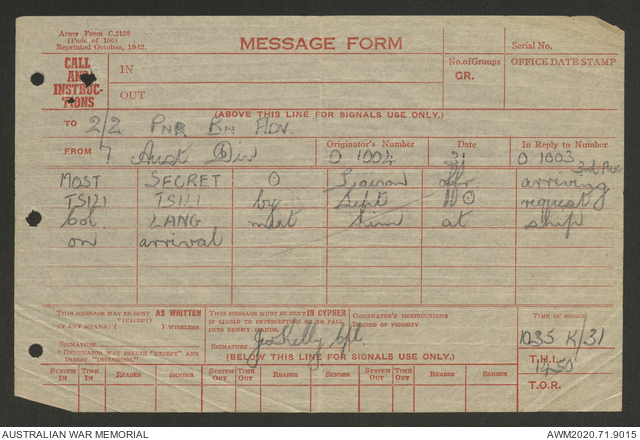 Army Form C.2136
(Pads of 100)
Reprinted October, 1942.
MESSAGE FORM
Serial No.
CALL AND INSTRUC-TIONS
IN
OUT
No. of Groups
GR.
OFFICE DATE STAMP
(ABOVE THIS LINE FOR SIGNALS USE ONLY.)
TO 2/2 PNR BN ADV.
FROM 7 Aust Div
Originator's Number
O 1004
Date
31
In Reply to Number
O 1003
MOST SECRET O offr arriving
TS121 TS121 by Sept 11 O request
Col LANG meet him at ship
on arrival
THIS MESSAGE MAY BE SENT AS WRITTEN
(EXCEPT)
BY ANY MEANS ( ) WIRELESS
SIGNATURE
* ORIGINATOR MAY DELETE "EXCEPT" AND
INSERT "INCLUDING."
THIS MESSAGE MUST BE SENT IN CYPHER
IF LIABLE TO INTERCEPTION OR TO FALL
INTO ENEMY HANDS.
SIGNATURE
Geo Kelly Cpl.
ORIGINATOR'S INSTRUCTIONS
DEGREE OF PRIORITY
TIME OF ORIGIN
1035 K/31
T.H.I.
1450
T.O.R.
(BELOW THIS LINE FOR SIGNALS USE ONLY.)
SYSTEM IN TIME IN READER SENDER SYSTEM OUT TIME OUT READER SENDER SYSTEM OUT TIME OUT READER SENDER
AUSTRALIAN WAR MEMORIAL
AWM2020.71.9015